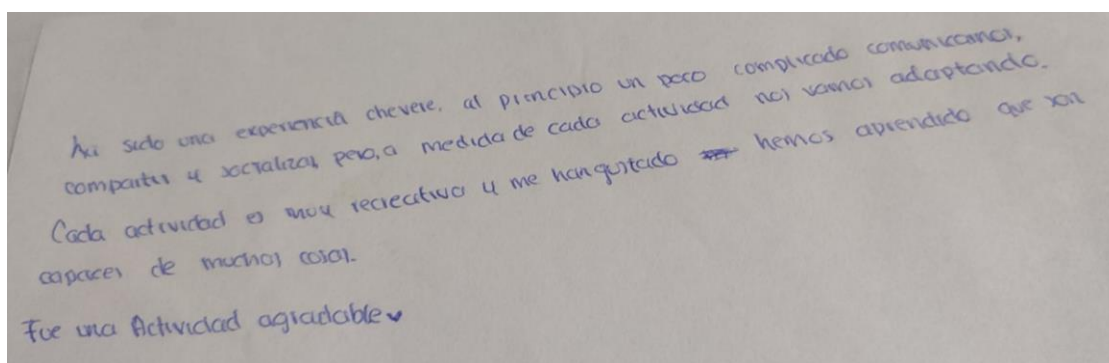 ha sido una experiencia chevere, al principio un poco complicado comunicarnos,
compartir y socializar pero, a medida de cada actividad nos vamos adaptando.
Cada actividad es muy recreativa y me han gustado hemos aprendido que son
capaces de muchas cosas.
Fue una Actividad agradable